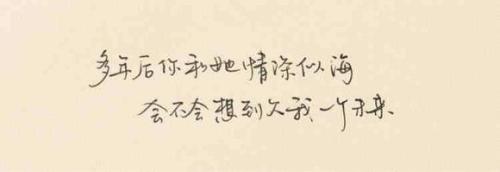 多年后你和她情深似海
会不会想到欠我一个未来